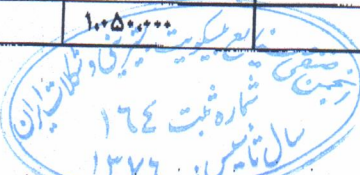 ۱,۰۵۰,۰۰۰
انجمن صنفی صنایع بیسکویت شیرینی و شکلات ایران
شماره ثبت ۱۶۴
سال تأسیس ۱۳۷۶